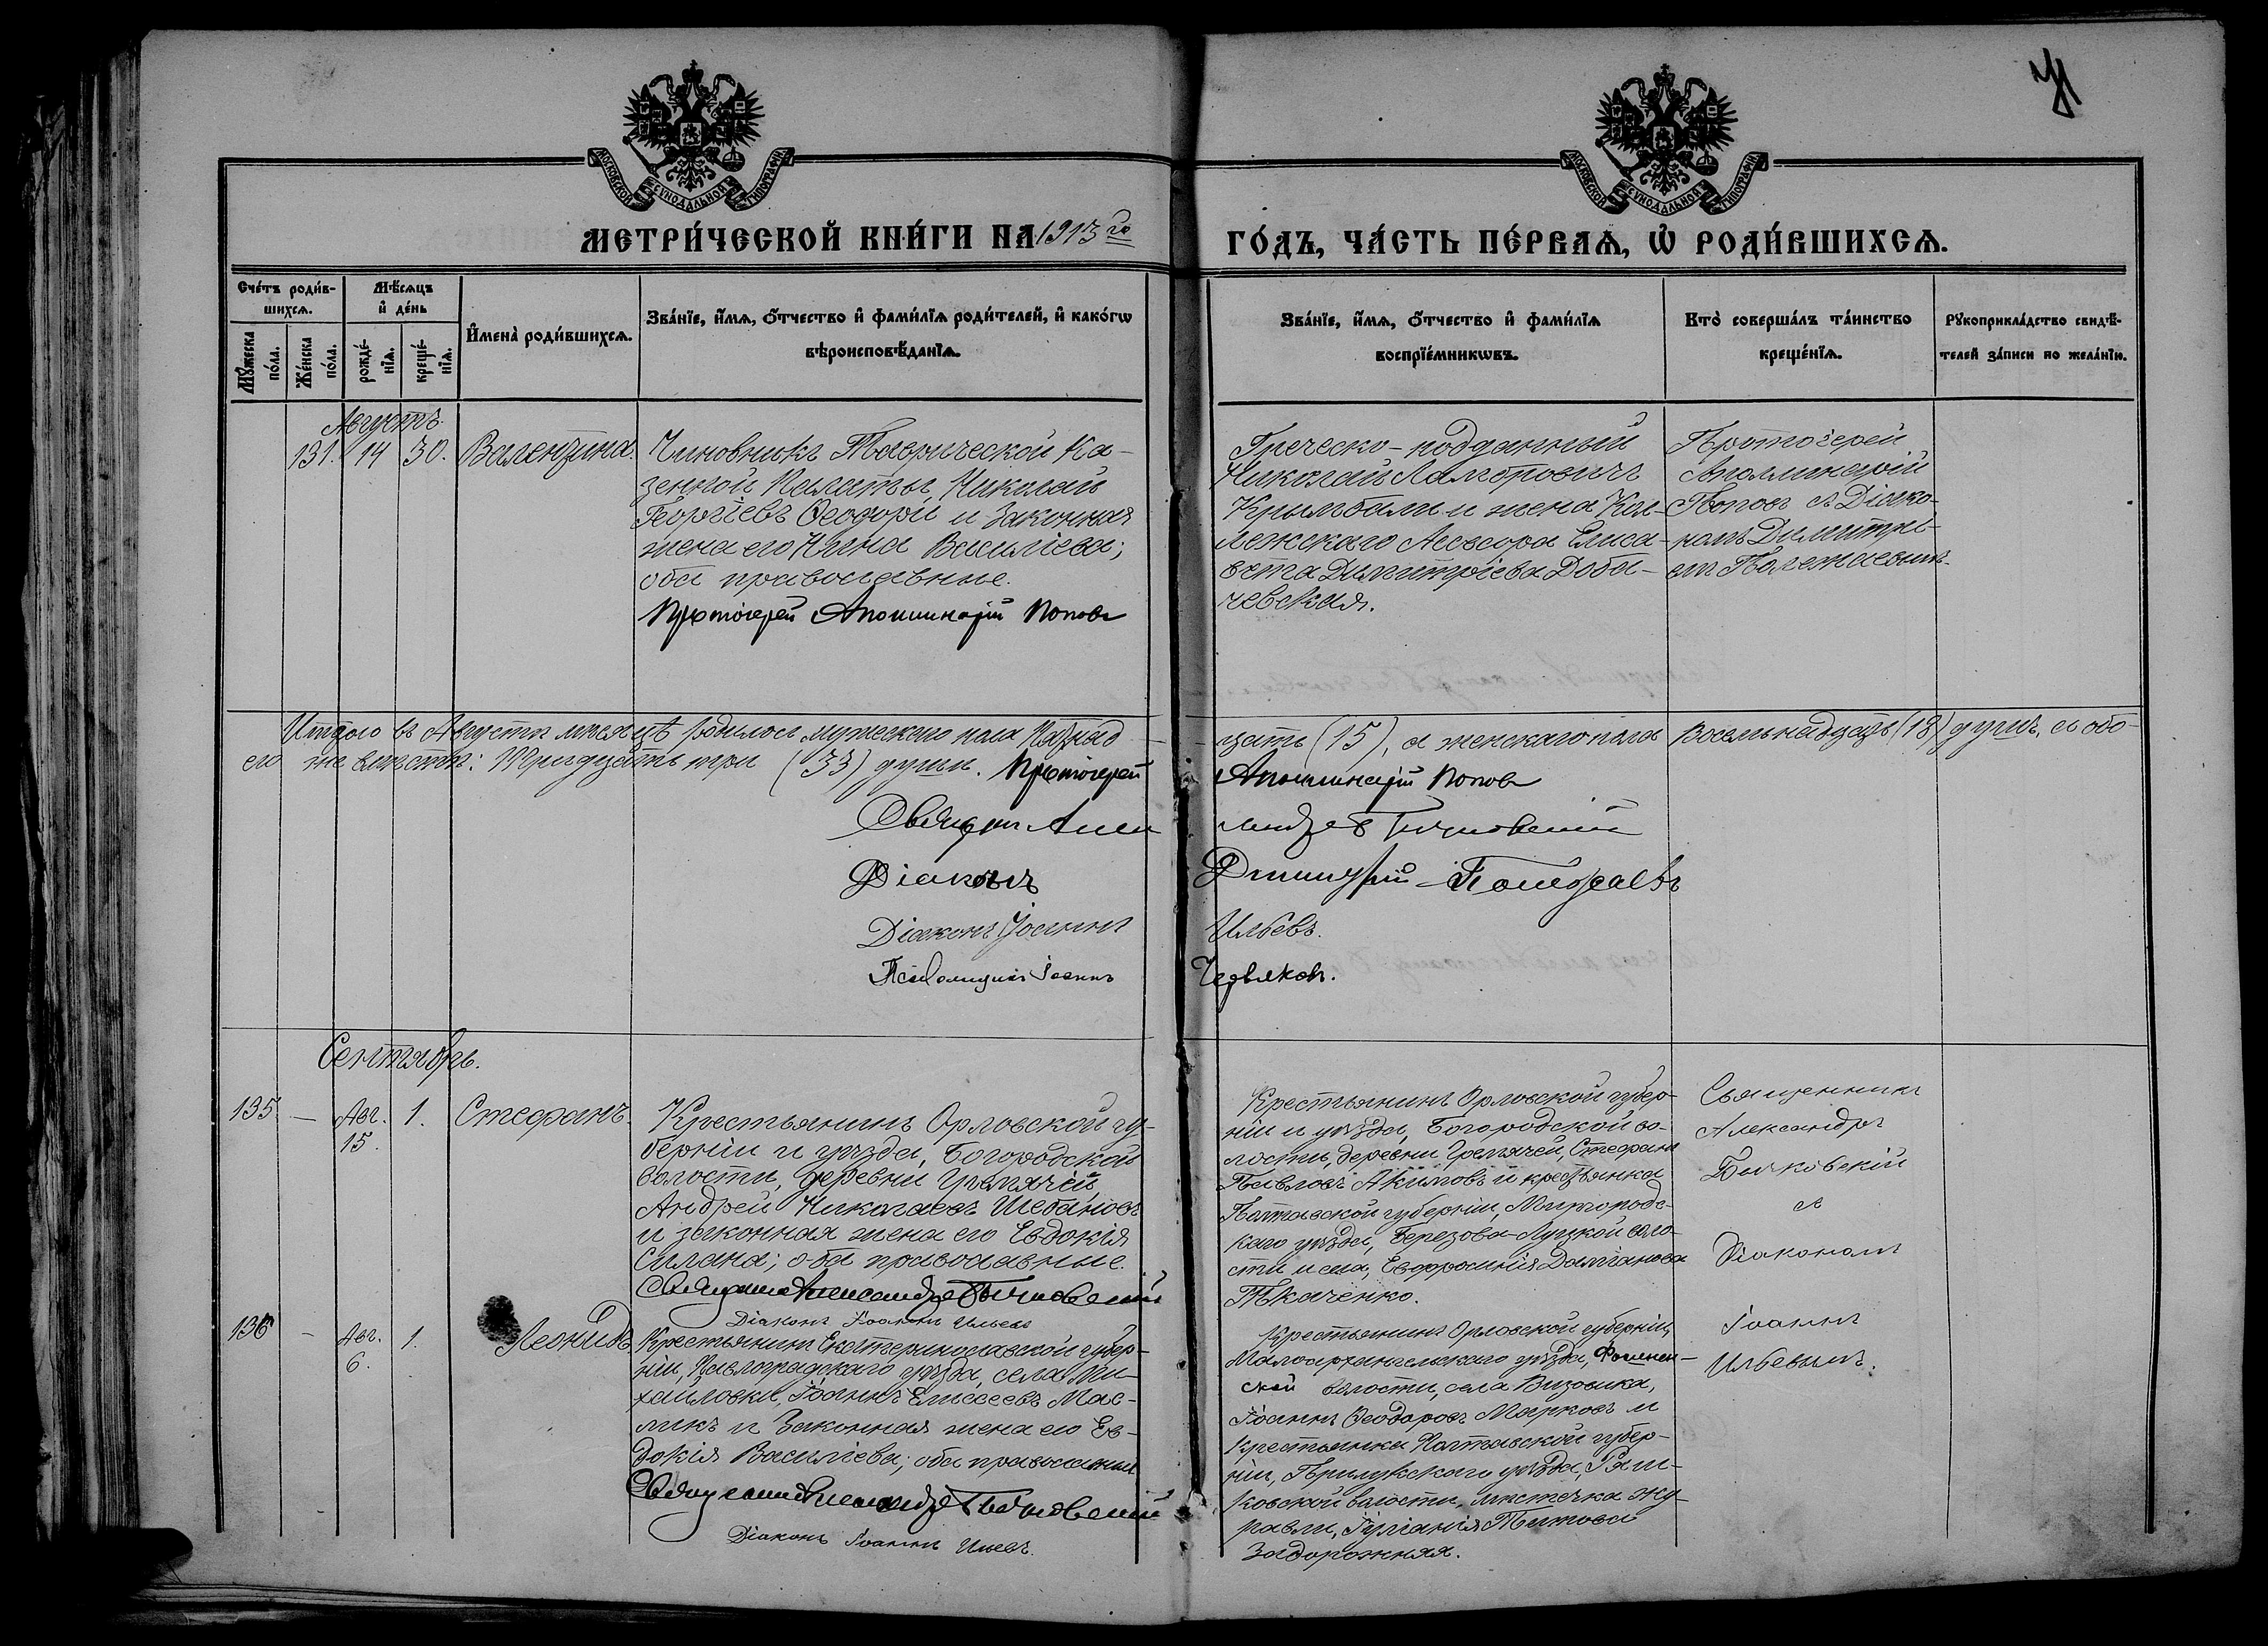 МОСКОВСКОЙ СѴНОДАЛЬНОЙ ТИПОГРАФІИ
МОСКОВСКОЙ СѴНОДАЛЬНОЙ ТИПОГРАФІИ
МЕТРИ́ЧЕСКОЙ КНИ́ГИ НА 1913 го ГО́ДЪ, ЧА́СТЬ ПЕ́РВАѦ, Ѡ РОДИ́ВШИХСѦ.
Сче́тъ роди́в-
шихсѧ.
Мꙋжеска по́ла.
Же́нска по́ла.
Мѣ́сѧцъ
и де́нь
рожде́-
нїѧ.
креще́-
нїѧ.
Имена̀ роди́вшихсѧ.
Зва́нїе, и́мѧ, о́тчество и фами́лїѧ роди́телей, и како́гѡ
вѣроисповѣ́данїѧ.
Зва́нїе, и́мѧ, о́тчество и фами́лїѧ
воспрїе́мникѡвъ.
Кто̀ соверша́лъ та́инство
креще́нїѧ.
Рꙋкоприкла́дство свидѣ́-
телей за́писи по жела́нїю.
Августъ.
131. 14 30. Валентина.
Чиновникъ Таврической Ка-
зенной Палаты, Николай
Георгіевъ Ѳеодори и законная
жена его Нина Василіева;
оба православные.
Протоіерей Аполлинарій Поповъ
Греческо-подданный
Николай Ламбровичъ
Крымбали и жена Кол-
лежскаго Ассесора Елиса-
вета Димитріева Доба-
чевская.
Протоіерей
Аполлинарій
Поповъ съ Діако-
номъ Димитрі-
емъ Полежаевымъ.
Итого въ Августѣ мѣсяцѣ родилось мужескаго пола Пятнад-
цать (15), а женскаго пола Восемьнадцать (18) душъ, а обо-
его же вмѣстѣ: Тридцать три (33) души. Протоіерей
Аполлинарій Поповъ
Священ. Александръ Бычковскій
Діаконъ Димитрій Полежаевъ
Діаконъ Іоаннъ Ильевъ.
Псаломщикъ Іоаннъ Червяковъ.
Сентябрь.
135. — Авг. 15. 1. Стефанъ.
Крестьянинъ Орловской гу-
берніи и уѣзда, Богородской
волости, деревни Гремячей,
Андрей Николаевъ Шебановъ
и законная жена его Евдокія
Силана; оба православные.
Священникъ Александръ Бычковскій
Діаконъ Іоаннъ Ильевъ
Крестьянинъ Орловской губер-
ніи и уѣзда, Богородской во-
лости, деревни Гремячей, Стефанъ
Павловъ Акимовъ и крестьянка
Полтавской губерніи, Миргородс-
каго уѣзда, Березова-Луцкой воло-
сти и села, Евфросинія Даміанова
Ткаченко.
Священникъ
Александръ
Бычковскій
съ
Діакономъ
Іоанномъ
Ильевымъ.
136 — Авг. 6. 1. Леонидъ
Крестьянинъ Екатеринославской губер-
ніи, Павлоградскаго уѣзда, села Ми-
хайловки, Іоаннъ Елисеевъ Мас-
ликъ и законная жена его Ев-
докія Василіева; оба православные
Священникъ Александръ Бычковскій
Діаконъ Іоаннъ Ильевъ.
Крестьянинъ Орловской губерніи,
Малоархангельскаго уѣзда,
ской волости, села
Іоаннъ Ѳеодоровъ Марковъ и
крестьянка Полтавской губер-
ніи, Прилукскаго уѣзда, Ряш-
ковской волости, мѣстечка Жу-
равли, Іуліанія Титова
Задорожняя.